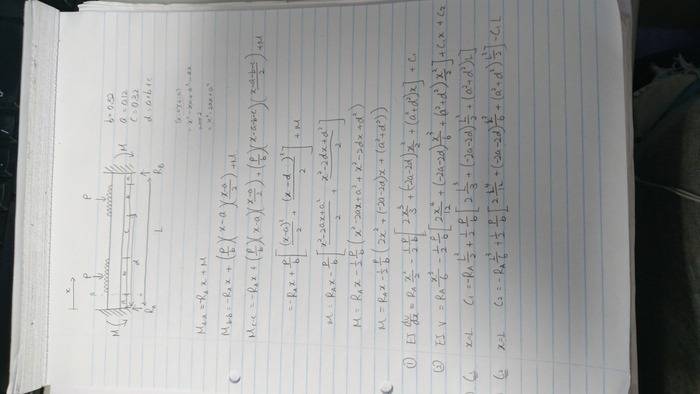 x
P
P
M
M
a
b
c
b
a
d
L
R_A
R_B
b = 0.52
a = 0.12
c = 0.32
d = a+b+c
M_aa = -R_A x + M
M_bb = -R_A x + (P/b)(x-a)((x-a)/2) + M
M_cc = -R_A x + (P/b)(x-a)((x-a)/2) + (P/b)(x-a-b-c)((x-a-b-c)/2) + M
= -R_A x + P/b [(x-a)²/2 + (x-d)²/2] + M
M = R_A x - P/b [(x²-2ax+a²)/2 + (x²-2dx+d²)/2]
M = R_A x - 1/2 P/b (x²-2ax+a²+x²-2dx+d²)
M = R_A x - 1/2 P/b (2x²+(-2a-2d)x+(a²+d²))
① EI dv/dx = R_A x²/2 - 1/2 P/b [2x³/3 + (-2a-2d)x²/2 + (a²+d²)x] + C₁
② EI v = R_A x³/6 - 1/2 P/b [2x⁴/12 + (-2a-2d)x³/6 + (a²+d²)x²/2] + C₁x + C₂
C₁ x=L C₁ = -R_A L²/2 + 1/2 P/b [2 L³/3 + (-2a-2d)L²/2 + (a²+d²)L]
C₂ x=L C₂ = -R_A L³/6 + 1/2 P/b [2 L⁴/12 + (-2a-2d)L³/6 + (a²+d²)L²/2] - C₁L